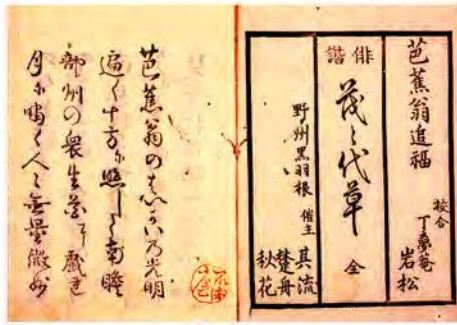 芭蕉翁追福
校合
丁桑菴
岩松
俳諧
茂々代草 全
野州黒羽根 催主
其流
楚舟
秋花
芭蕉翁の 乃光明
遍く十方に照して南瞻
部州の衆生花に戯れ
月に嘯く人々無量微妙